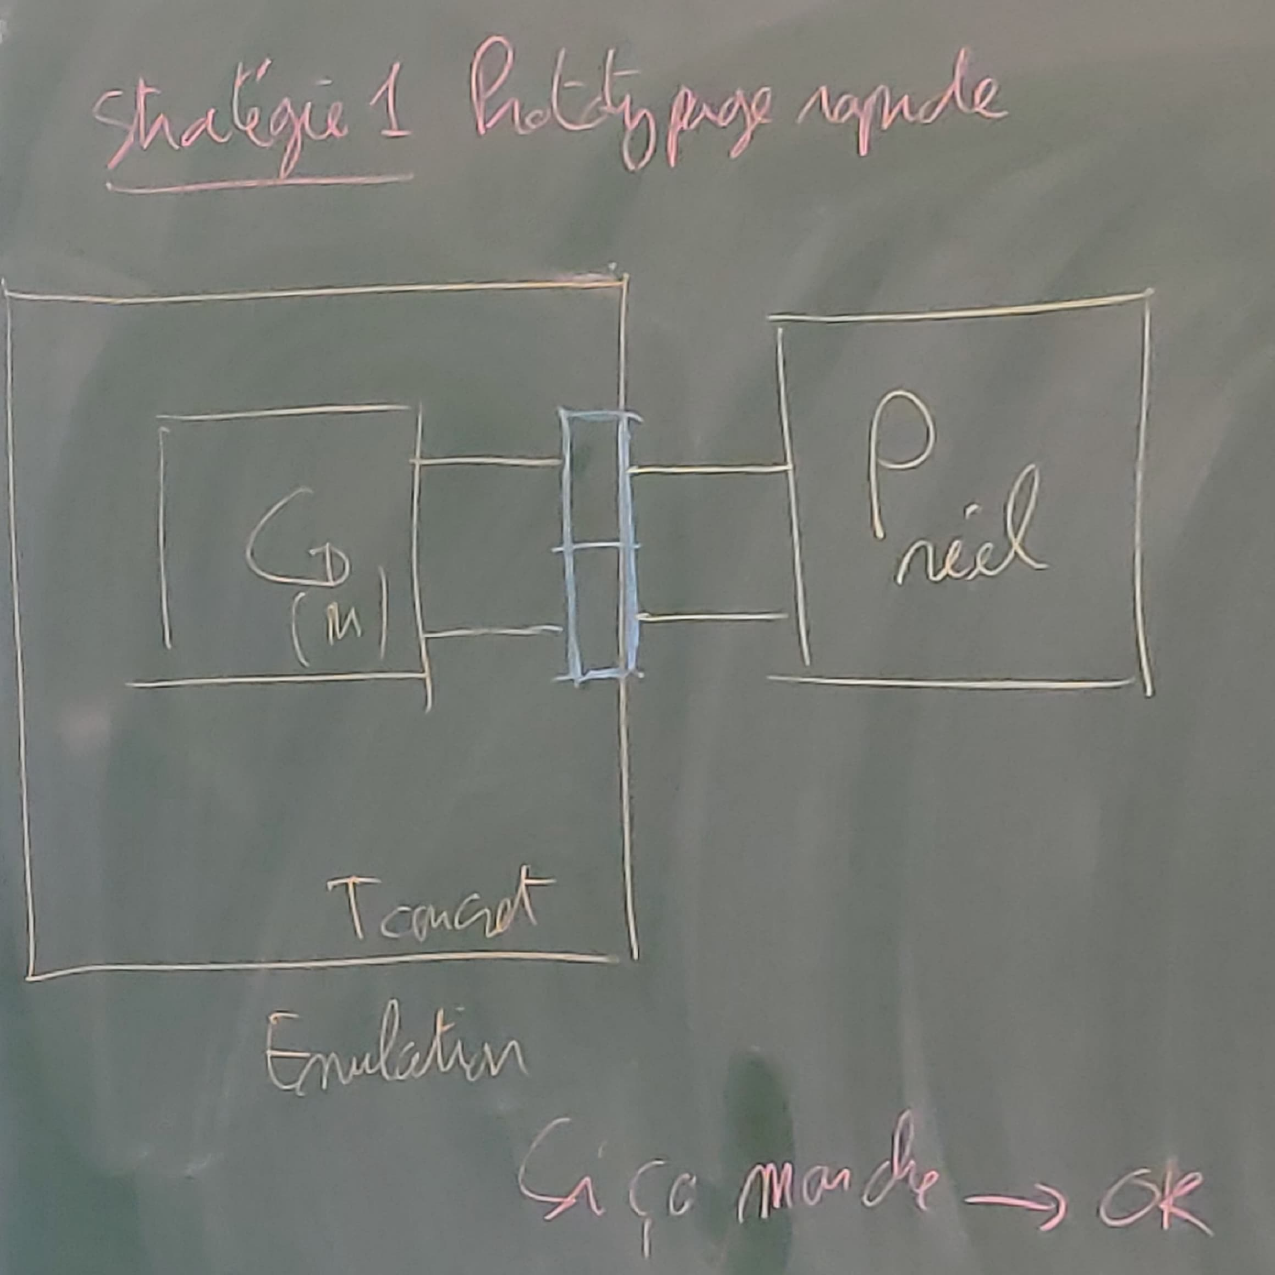 Stratégie 1 Prototypage rapide
C_D
(M)
P
réel
T concret
Emulation
Si ça marche → OK